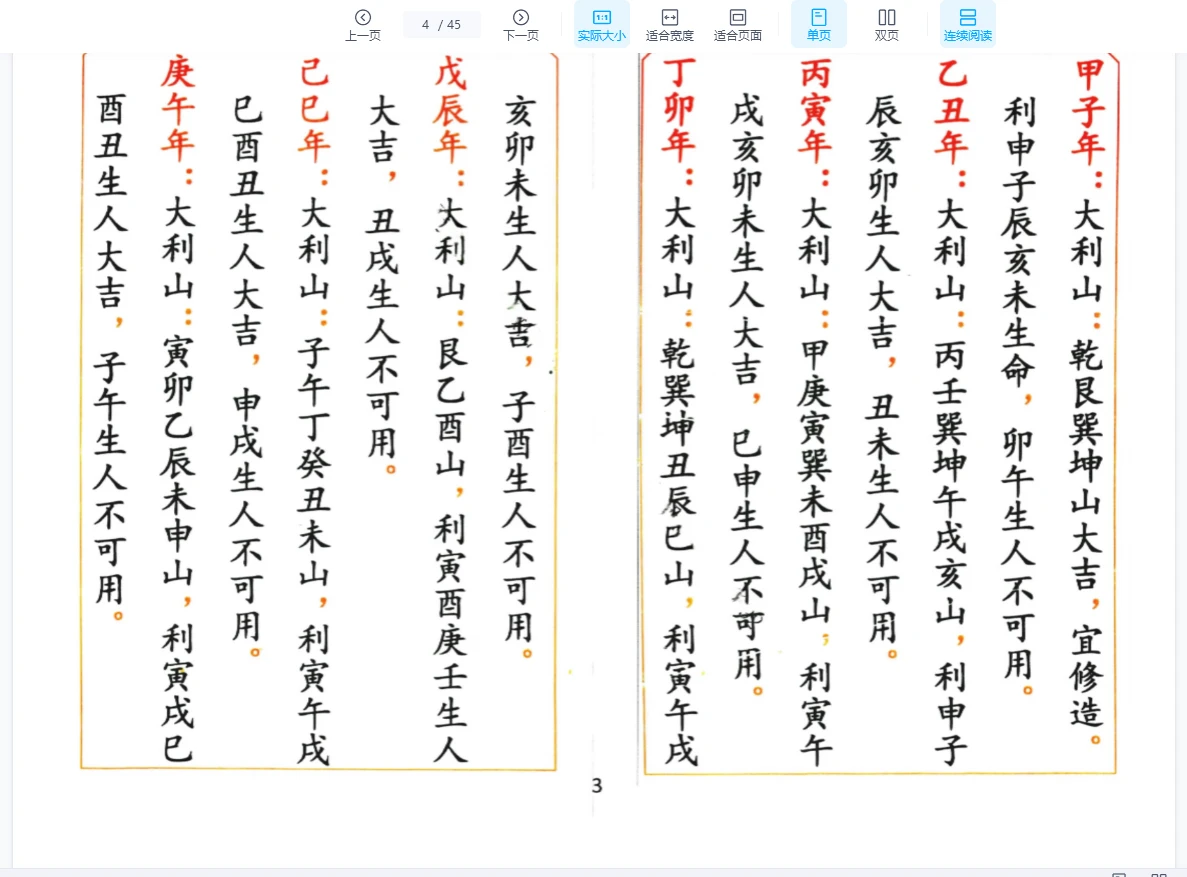 上一页
4 / 45
下一页
实际大小
适合宽度
适合页面
单页
双页
连续阅读
甲子年：大利山：乾艮巽坤山大吉，宜修造。
利申子辰亥未生命，卯午生人不可用。
乙丑年：大利山：丙壬巽坤午戌亥山，利申子
辰亥卯生人大吉，丑未生人不可用。
丙寅年：大利山：甲庚寅巽未酉戌山，利寅午
戌亥卯未生人大吉，巳申生人不可用。
丁卯年：大利山：乾巽坤丑辰巳山，利寅午戌
亥卯未生人大吉，子酉生人不可用。
戊辰年：大利山：艮乙酉山，利寅酉庚壬生人
大吉，丑戌生人不可用。
己巳年：大利山：子午丁癸丑未山，利寅午戌
巳酉丑生人大吉，申戌生人不可用。
庚午年：大利山：寅卯乙辰未申山，利寅戌巳
酉丑生人大吉，子午生人不可用。
3